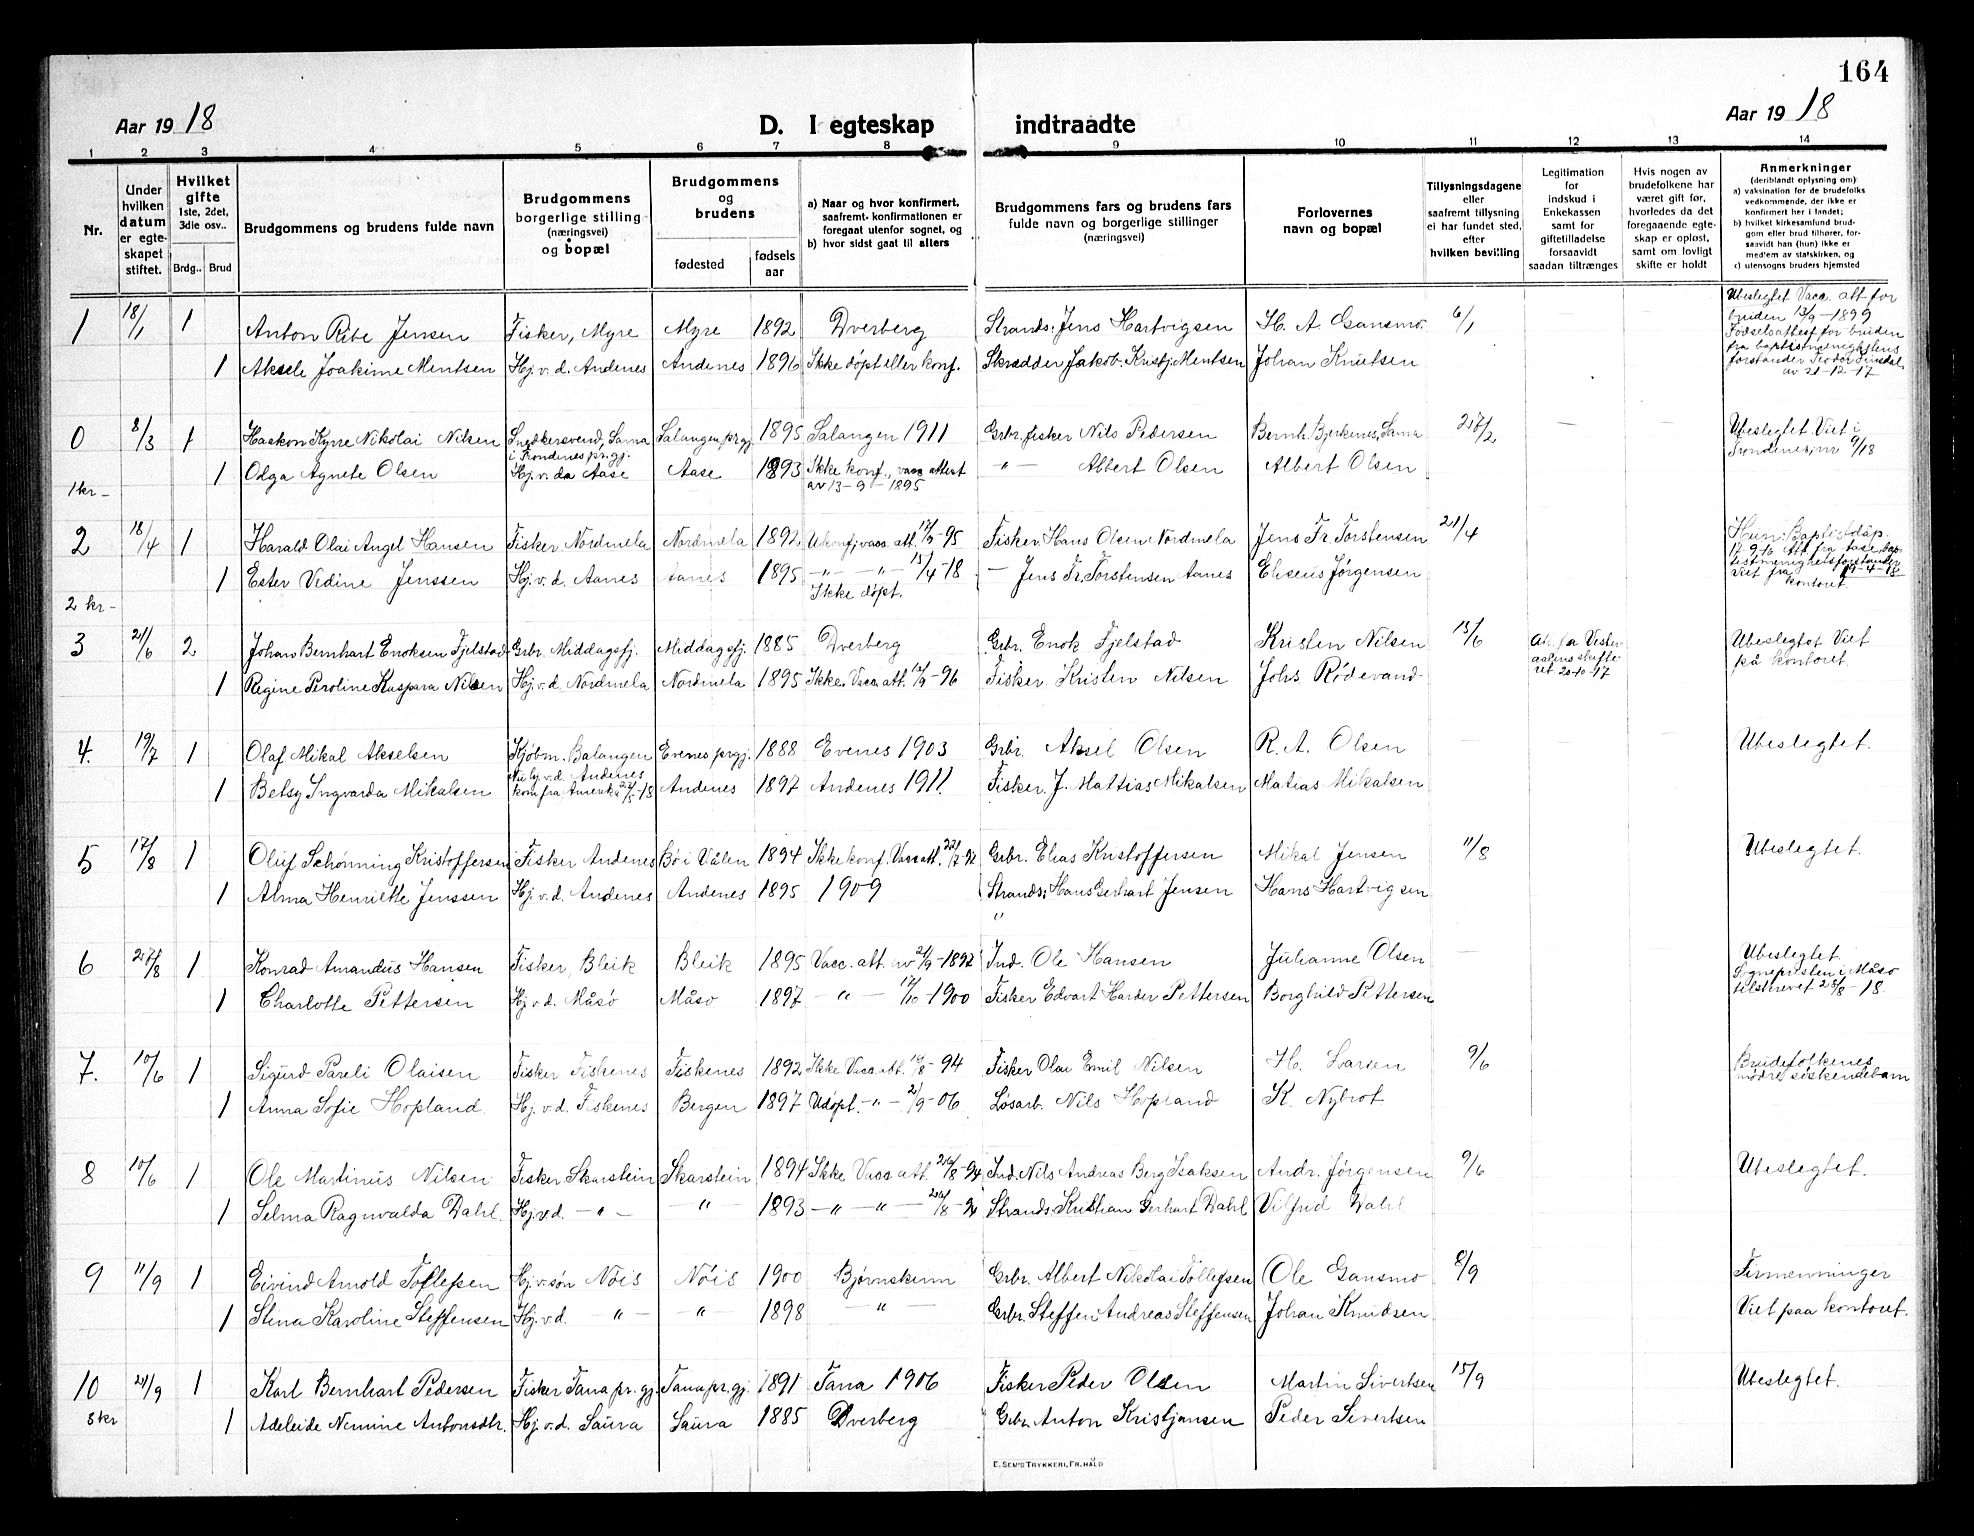 164
Aar 1918
D. I egteskap indtraadte
Aar 1918
1 2 3 4 5 6 7 8 9 10 11 12 13 14
Nr.
Under hvilken datum er egteskapet stiftet.
Hvilket gifte 1ste, 2det, 3die osv..
Brdg.. Brud
Brudgommens og brudens fulde navn
Brudgommens borgerlige stilling (næringsvei) og bopæl
Brudgommens og brudens
fødested
fødsels aar
a) Naar og hvor konfirmert, saafremt konfirmationen er foregaat utenfor sognet, og
b) hvor sidst gaat til alters
Brudgommens fars og brudens fars fulde navn og borgerlige stillinger (næringsvei)
Forlovernes navn og bopæl
Tillysningsdagene eller saafremt tillysning ei har fundet sted, efter hvilken bevilling
Legitimation for indskud i Enkekassen samt for giftetilladelse forsaavidt saadan tiltrænges
Hvis nogen av brudefolkene har været gift før, hvorledes da det foregaaende egteskap er opløst, samt om lovligt skifte er holdt
Anmerkninger
(deriblandt oplysning om:
a) vaksination for de brudefolks vedkommende, der ikke er konfirmert her i landet;
b) hvilket kirkesamfund brudgom eller brud tilhører, forsaavidt han (hun) ikke er medlem av statskirken, og
c) utensogns bruders hjemsted
1 18/1 1 Anton Ribe Jensen Fisker, Myre Myre 1892 Dverberg Strands. Jens Hartvigsen H. A. Gansmo. 6/1 Ubeslegtet Vacc. att for bruden 13/9-1899 Fødselsattest for bruden fra baptistmenighetens forstander Teodor av 21-12-17
1 Aksele Joakime Mentsen Hj. v. d. Andenes Andenes 1896 Ikke døpt eller konf. Skrædder Jakob Kristj. Mentsen Johan Knutsen
0 8/3 1 Haakon Kyrre Nikolai Nilsen Snedkersvend, Sama i Trondenes pr.gj. Salangen pr.gj. 1895 Salangen 1911 Grbr. fisker Nils Pedersen Bernh. Bjerkenes, Sama 27/2 Ubeslegtet Viet i Trondenes, nr 9/18
1 Olga Agnete Olsen Hj. v. da Aase Aase 1893 Ikke konf., vacc. attest av 13-9-1895 " Albert Olsen Albert Olsen
1 kr -
2 18/4 1 Harald Olai Angel Hansen Fisker Nordmela Nordmela 1892 Ukonf. vacc. att. 17/9-95 Fisker Hans Olsen Nordmela Jens Fr. Torstensen 21/4 Hun: Baptistdåp. 17-9-10 Att fra Aase baptistmenighetsforstander 9-4-18 Viet fra kontoret
1 Ester Vedine Jenssen Hj. v. d. Aanes Aanes 1895 - " - " - 15/4-18 Ikke døpt. - Jens Fr. Torstensen Aanes Eliseus Jørgensen
2 kr -
3 21/6 2 Johan Bernhart Enoksen Fjelstad Grbr. Middagsfj. Middagsfj. 1885 Dverberg Grbr. Enok Fjelstad Kristen Nilsen 15/6 Att. fra Vesteraalens skifteret 20-10-17 Ubeslegtet Viet på kontoret.
1 Regine Peroline Kaspara Nilsen Hj. v. d. Nordmela Nordmela 1895 Ikke. Vacc. att. 12/9-96 Fisker Kristen Nilsen Johs Rødevand
4. 19/7 1 Olaf Mikal Akselsen Kjøbm. Balangen Evenes prgj. 1888 Evenes 1903 Grbr. Aksel Olsen R. A. Olsen Ubeslegtet.
1 Betsy Ingvarda Mikalsen Nu hj. v. d. Andenes kom fra Amerika -18 Andenes 1897 Andenes 1911. Fisker. J. Mattias Mikalsen Matias Mikalsen
5 17/8 1 Oluf Schønning Kristoffersen Fisker Andenes Bø i Vålen 1894 Ikke konf. Vacc att. Grbr. Elias Kristoffersen Mikal Jensen 11/8 Ubeslegtet.
1 Alma Henriette Jenssen Hj. v. d. Andenes Andenes 1895 1909 Strands: Hans Gerhart Jensen Hans Hartvigsen
6 27/8 1 Konrad Amandus Hansen Fisker, Bleik Bleik 1895 Vacc. att. av 21/9-1897 Ind. Ole Hansen Julianne Olsen Ubeslegtet. Sognepresten i Måsø tilskrevet 28/8-18.
1 Charlotte Pettersen Hj v. d. Måsø Måsø 1897 - " - 17/10-1900 Fisker Edvart Harder Pettersen Borghild Pettersen
7. 10/6 1 Sigurd Pareli Olaisen Fisker Fiskenes Fiskenes 1892 Ikke Vacc att. -94 Fisker Olai Emil Nilsen H. Larsen 9/6 Brudefolkenes mødre søskendebarn
1 Anna Sofie Hopland. Hj. v. d. Fiskenes Bergen 1897 Udøpt. - " - 21/9-06 Løsarb. Nils Hopland K. Nybrot
8 10/6 1 Ole Martinus Nilsen Fisker Skarstein Skarstein 1894 Ikke Vacc att. Ind. Nils Andreas Berg Isaksen Andr. Jørgensen 9/6 Ubeslegtet.
1 Selma Ragnvalda Dahl. Hj. v. d. - " - - " - 1893 - " - " - Strands. Kristian Gerhart Dahl Vilfrid Dahl
9 11/9 1 Eivind Arnold Tollefsen Hj. v. søn Nöis Nöis 1900 Bjørnskinn Grbr. Albert Nikolai Tollefsen Ole Gansmo 8/9 Firmenninger
1 Stina Karoline Steffensen Hj. v. d. " - - " - 1898 - " - Grbr. Steffen Andreas Steffensen Johan Knudsen Viet paa kontoret.
10 21/9 1 Karl Bernhart Pedersen Fisker Tana pr. gj. Tana pr. gj. 1891 Tana 1906 Fisker Peder Olsen Martin Sivertsen 15/9 Ubeslegtet.
1 Adeleide Nemine Antonsdtr. Hj. v. d. Saura Saura 1885 Dverberg Grbr. Anton Kristjansen Peder Sivertsen
3 kr
E. SEM'S TRYKKERI, FR.HALD